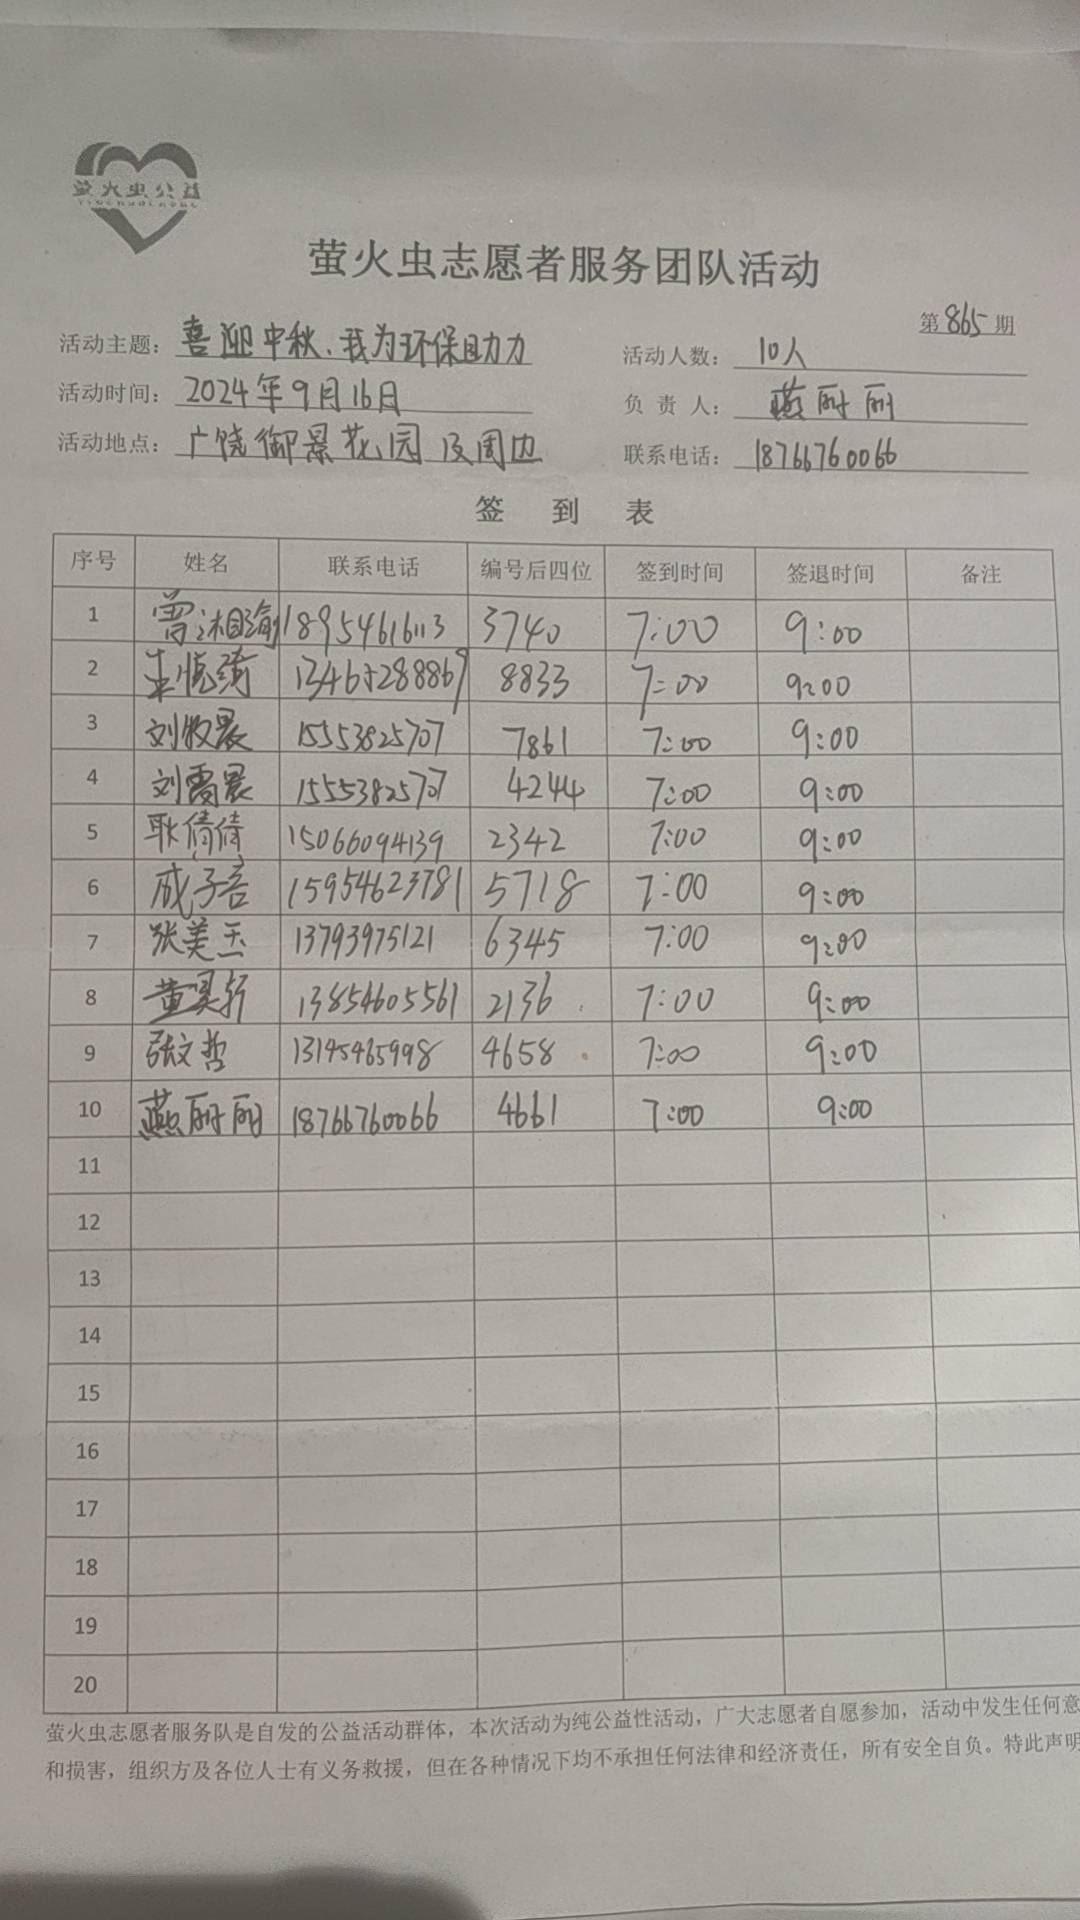 萤火虫公益
YINGHUOCHONG
萤火虫志愿者服务团队活动
第865期
活动主题：喜迎中秋、我为环保助力 活动人数：10人
活动时间：2024年9月16日 负责人：燕丽丽
活动地点：广饶御景花园及周边 联系电话：18766760066
签到表
序号 姓名 联系电话 编号后四位 签到时间 签退时间 备注
1 曾沐瑜 18954616113 3740 7:00 9:00
2 13465288869 8833 7:00 9:00
3 刘牧晨 15553825707 7861 7:00 9:00
4 刘雨晨 15553825707 4244 7:00 9:00
5 耿倩倩 15066094139 2342 7:00 9:00
6 成子言 15954623781 5718 7:00 9:00
7 张美玉 13793975121 6345 7:00 9:00
8 黄昊轩 13854605561 2136 7:00 9:00
9 张文哲 13145465998 4658 7:00 9:00
10 燕丽丽 18766760066 4661 7:00 9:00
11
12
13
14
15
16
17
18
19
20
萤火虫志愿者服务队是自发的公益活动群体，本次活动为纯公益性活动，广大志愿者自愿参加，活动中发生任何意
和损害，组织方及各位人士有义务救援，但在各种情况下均不承担任何法律和经济责任，所有安全自负。特此声明